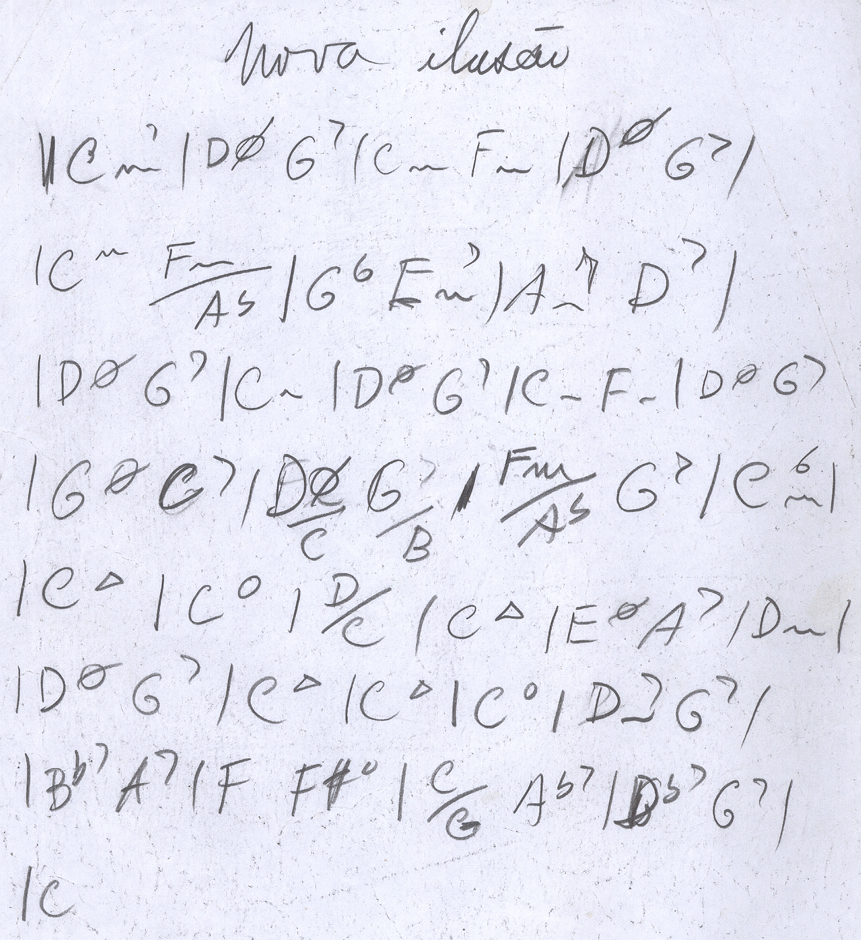 Nova ilusão
||Cm7 |DØ G7 |Cm Fm |DØ G7|
|Cm Fm/Ab |G6 Em7 |Am7 D7|
|DØ G7 |Cm |DØ G7 |Cm Fm |DØ G7
|GØ C7 |DØ/C G7/B |Fm/Ab G7 |Cm6|
|CΔ |C° |D/C |CΔ |EØ A7 |Dm|
|DØ G7 |CΔ |CΔ |C° |Dm7 G7|
|Bb7 A7 |F F#° |C/G Ab7 |Db7 G7|
|C